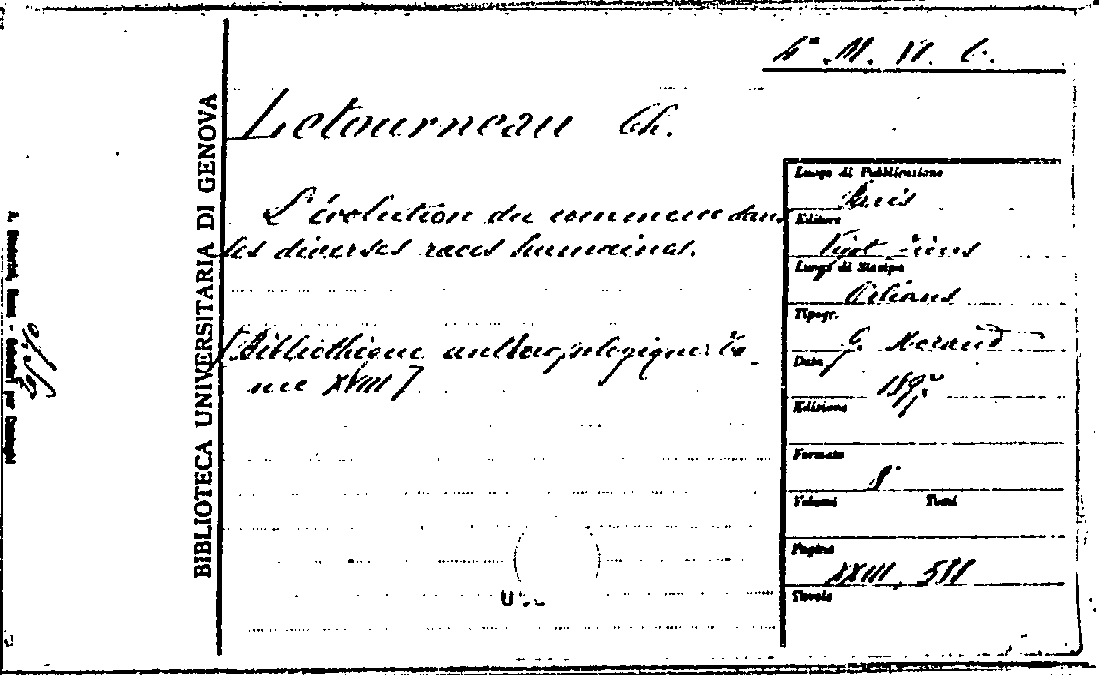 4ª M. VI. 6.
BIBLIOTECA UNIVERSITARIA DI GENOVA
Letourneau Ch.
L'évolution du commerce dans
les diverses races humaines.
[Bibliothèque anthropologique: To-
me XVIII]
Luogo di Pubblicazione
Paris
Editore
Vigot Frères
Luogo di Stampa
Orléans
Tipogr.
G. Morand
Data
Edizione
Formato
8°
Volumi Tomi
Pagine
XXIII, 581
Tavole